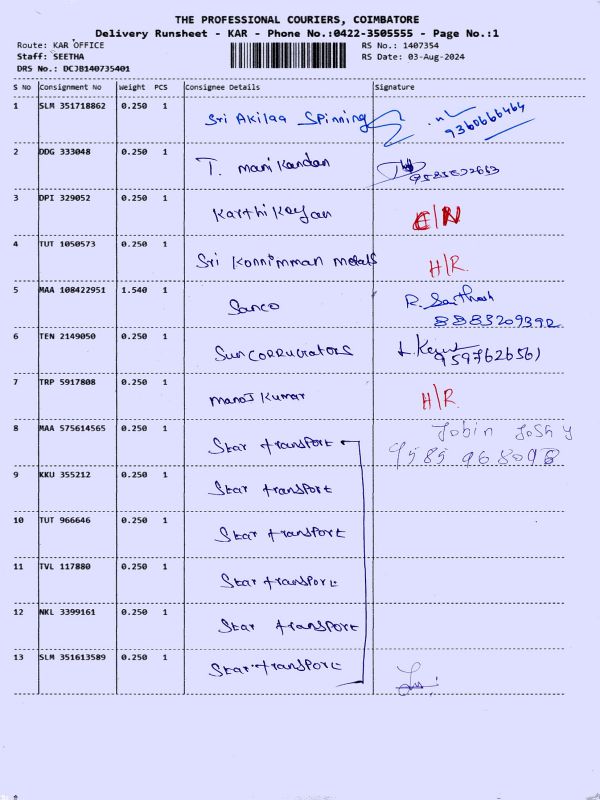 THE PROFESSIONAL COURIERS, COIMBATORE
Delivery Runsheet - KAR - Phone No.:0422-3505555 - Page No.:1
Route: KAR OFFICE RS No.: 1407354
Staff: SEETHA RS Date: 03-Aug-2024
DRS No.: DCJB140735401
S No Consignment No Weight PCS Consignee Details Signature
1 SLM 351718862 0.250 1 Sri Akilaa Spinning 9360666464
2 DDG 333048 0.250 1 T. Manikandan
3 DPI 329052 0.250 1 Karthikeyan
4 TUT 1050573 0.250 1 Sri Konnimman Metals H/R.
5 MAA 108422951 1.540 1 Sanco R. Santhosh
8883209392
6 TEN 2149050 0.250 1 Sun Corrugators
7 TRP 5917808 0.250 1 Manoj Kumar H/R.
8 MAA 575614565 0.250 1 Star transport Jobin Joshy
9585 96 8098
9 KKU 355212 0.250 1 Star transport
10 TUT 966646 0.250 1 Star transport
11 TVL 117880 0.250 1 Star transport
12 NKL 3399161 0.250 1 Star transport
13 SLM 351613589 0.250 1 Star transport